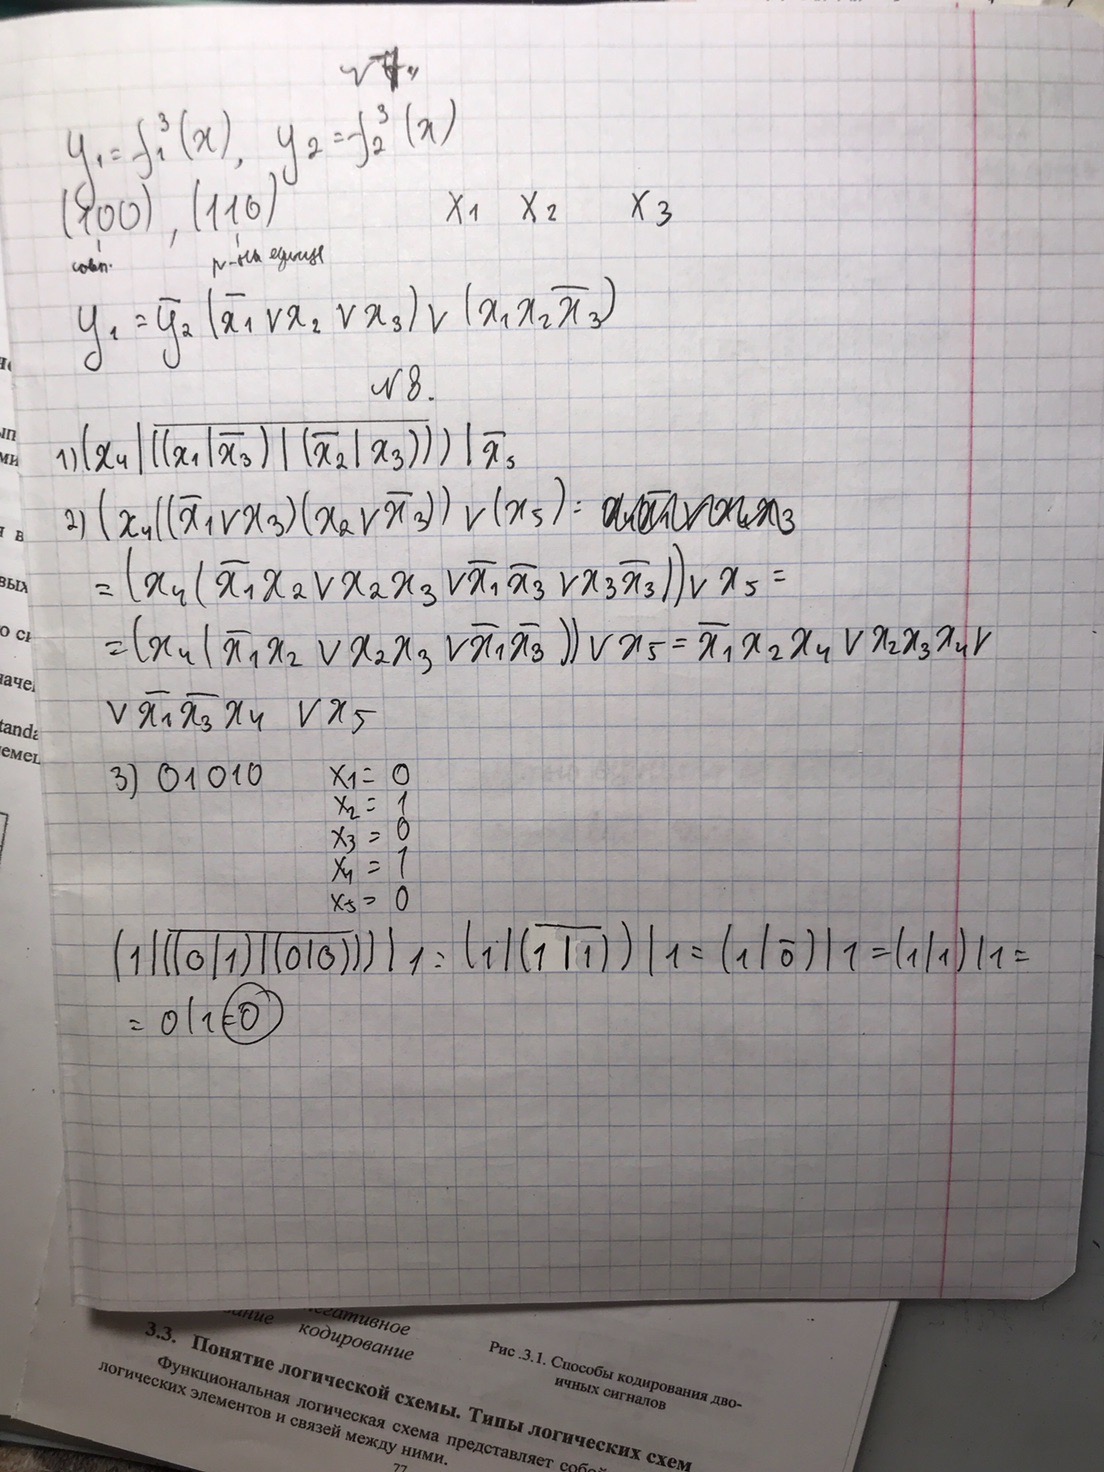 №7.
y₁ = f₁³(x), y₂ = f₂³(x)
(100), (110)   x₁ x₂ x₃
совп.
y₁ = ȳ₂ (x̄₁ ∨ x₂ ∨ x₃) ∨ (x₁x₂x̄₃)
№8.
1) (x₄ | \overline{((x₁ | x̄₃) | (x̄₂ | x₃))}) | x̄₅
2) (x₄((x̄₁ ∨ x₃)(x₂ ∨ x̄₃)) ∨ (x₅) =
= (x₄(x̄₁x₂ ∨ x₂x₃ ∨ x̄₁x̄₃ ∨ x₃x̄₃)) ∨ x₅ =
= (x₄(x̄₁x₂ ∨ x₂x₃ ∨ x̄₁x̄₃)) ∨ x₅ = x̄₁x₂x₄ ∨ x₂x₃x₄ ∨
∨ x̄₁x̄₃x₄ ∨ x₅
3) 01010   x₁ = 0
x₂ = 1
x₃ = 0
x₄ = 1
x₅ = 0
(1 | \overline{((0|1) | (0|0))}) | 1 = (1 | (\overline{1 | 1})) | 1 = (1 | 0̄) | 1 = (1|1) | 1 =
= 0 | 1 = 0
негативное
кодирование
Рис .3.1. Способы кодирования дво-
ичных сигналов
3.3. Понятие логической схемы. Типы логических схем
Функциональная логическая схема представляет собой
логических элементов и связей между ними.
77